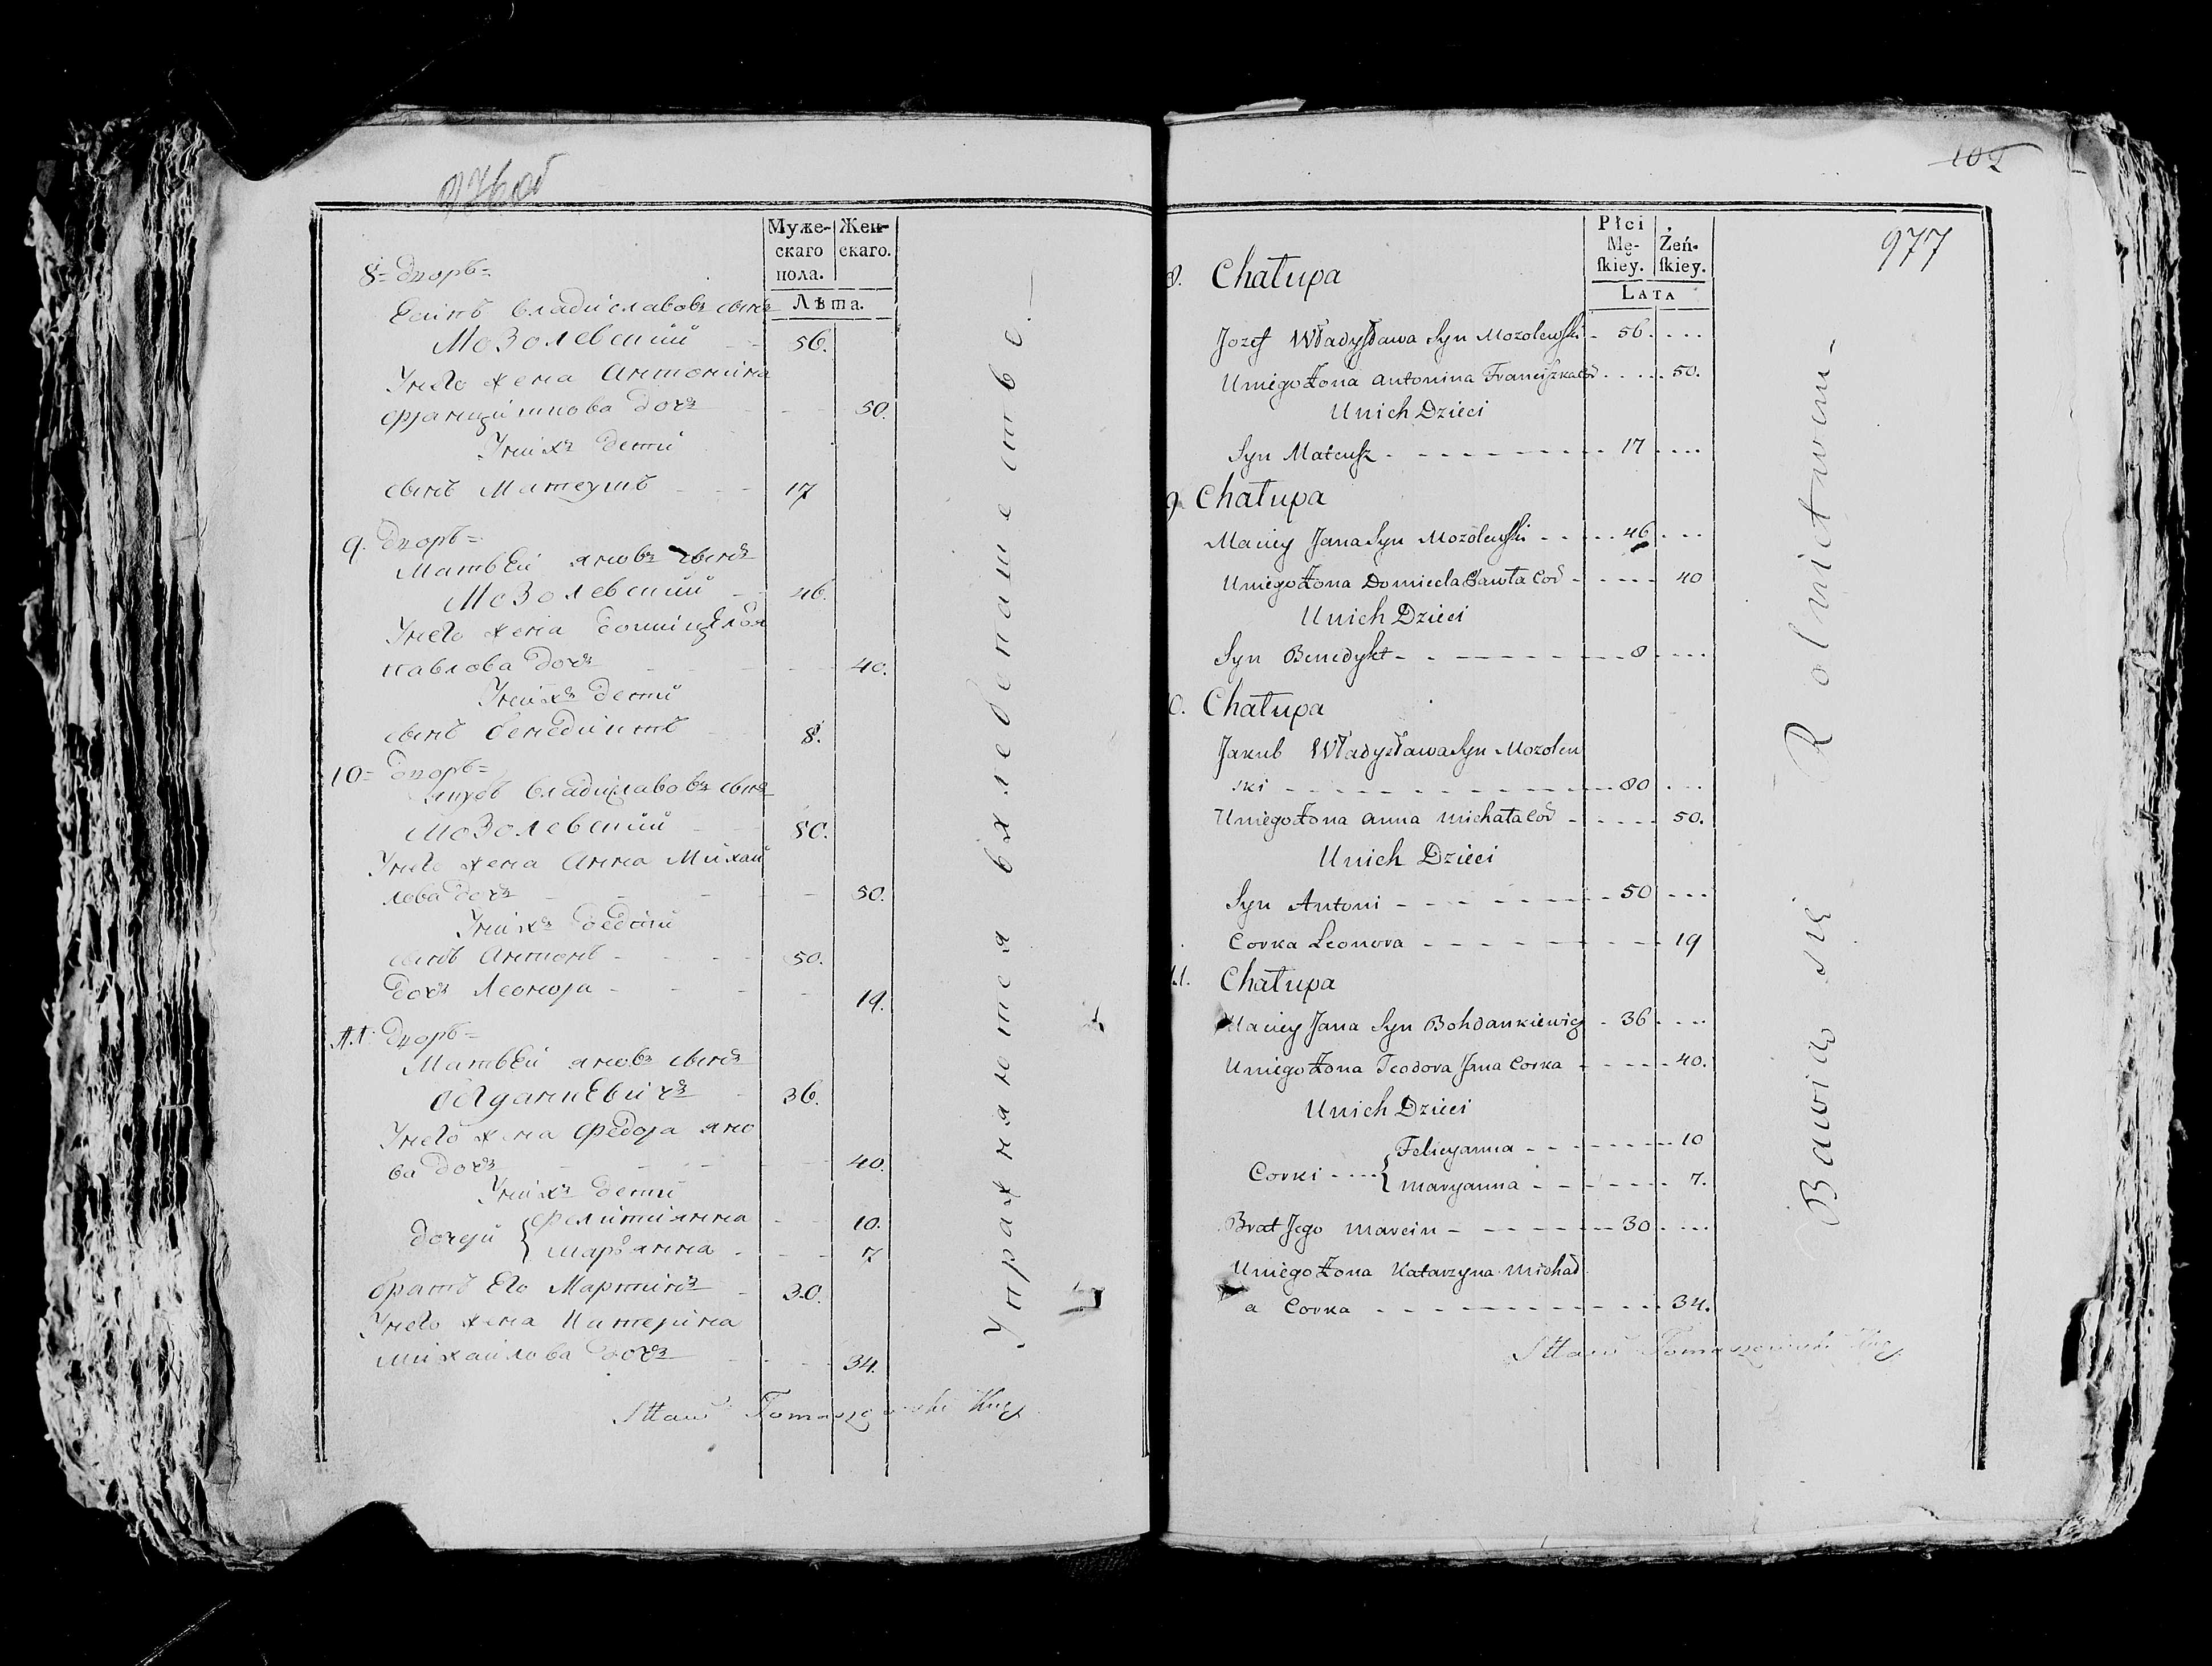 976об
Муже-
скаго
пола.
Жен-
скаго.
Лѣта.
8= Дворъ=
Владиславовъ сынъ
Мозолевский 56.
Унего жена Антонина
Францишкова дочь 50.
Унихъ дети
сынъ Матеушъ 17
9. Дворъ=
Матвѣй Яновъ сынъ
Мозолевский 46.
Унего жена
Павлова дочь 40.
Унихъ дети
сынъ Бенедиктъ 8.
10= Дворъ=
Якубъ Владиславовъ сынъ
Мозолевский 80.
Унего жена Анна Михай
лова дочь 50.
Унихъ дети
сынъ Антонъ 50.
дочь Леонора 19.
11. Дворъ=
Матвѣй Яновъ сынъ
36.
Унего жена Федора Яно
ва дочь 40.
Унихъ дети
дочери { Фелициянна 10.
Марьянна 7
братъ Его Мартинъ 30.
Унего жена Катерина
Михайлова дочь 34.
Упражняются вхлебопашестве.
Tomaszewski
102
977
Płci
Mę-
ſkiey.
Żeń-
ſkiey.
Lata
8. Chałupa
Jozef Władysława Syn Mozolewski - 56. ...
Uniego Żona Antonina Franciszka Cod .... 50.
Unich Dzieci
Syn Mateusz - - - - 17 ....
9 Chałupa
Maciey Jana Syn Mozolewski - - 46 ...
Uniego Żona Domicela Pawła Cod - - - - 40
Unich Dzieci
Syn Benedykt - - - - 8 ....
10. Chałupa
Jakub Władysława Syn Mozolew
ski - - - - 80 ...
Uniego Żona Anna Michała Cod - - - - 50.
Unich Dzieci
Syn Antoni - - - - 50 ...
Corka Leonora - - - - 19
11. Chałupa
Maciey Jana Syn Bohdankiewicz - 36 ...
Uniego Żona Teodora Jana Corka - - - - 40.
Unich Dzieci
Corki - - - { Felicyanna - - - - 10
Maryanna - - - - 7.
Brat Jego Marcin - - - - 30 ...
Uniego Żona Katarzyna Michał
a Corka - - - - 34.
Bawią się Rolnictwem -
Tomaszewski